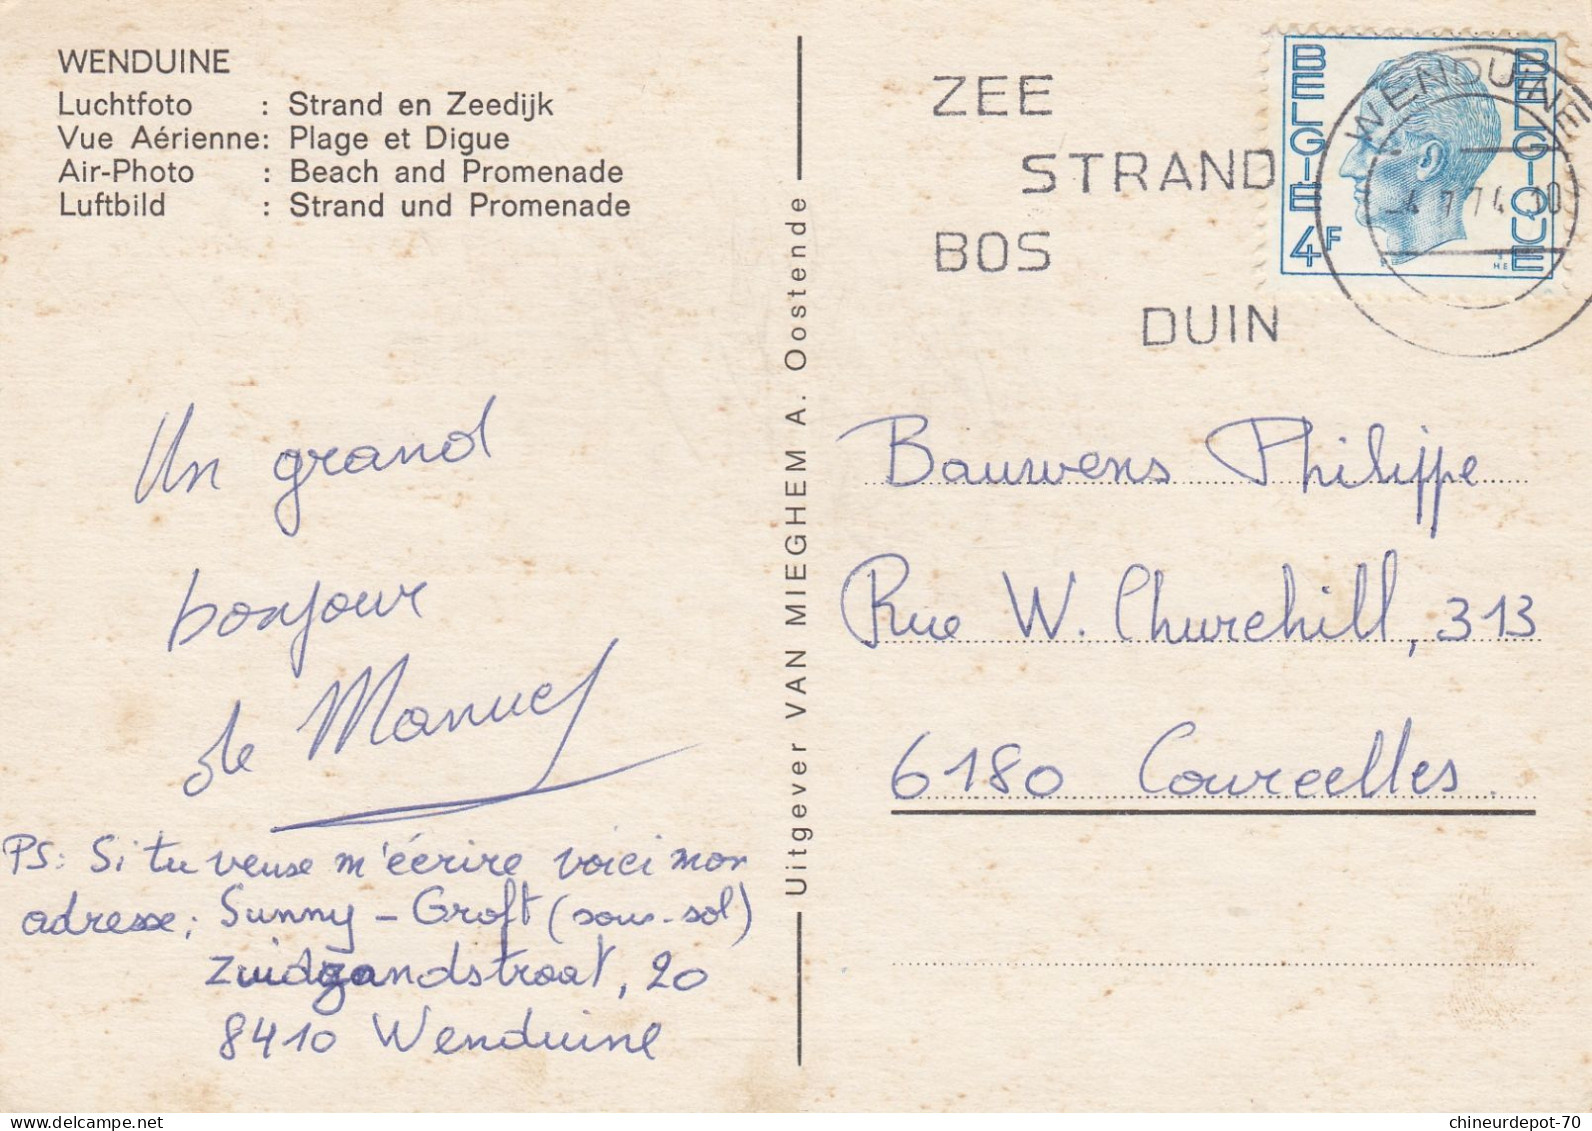 WENDUINE
Luchtfoto : Strand en Zeedijk
Vue Aérienne: Plage et Digue
Air-Photo : Beach and Promenade
Luftbild : Strand und Promenade
Un grand
bonjour
de Manuel
PS: Si tu veuse m'écrire voici mon
adresse: Sunny-Groft (sous-sol)
Zuidzandstraat, 20
8410 Wenduine
Uitgever VAN MIEGHEM A. Oostende
ZEE
STRAND
BOS
DUIN
BELGIË
BELGIQUE
4F
WENDUINE
Bauwens Philippe
Rue W. Churchill, 313
6180 Courcelles.
chineurdepot-70